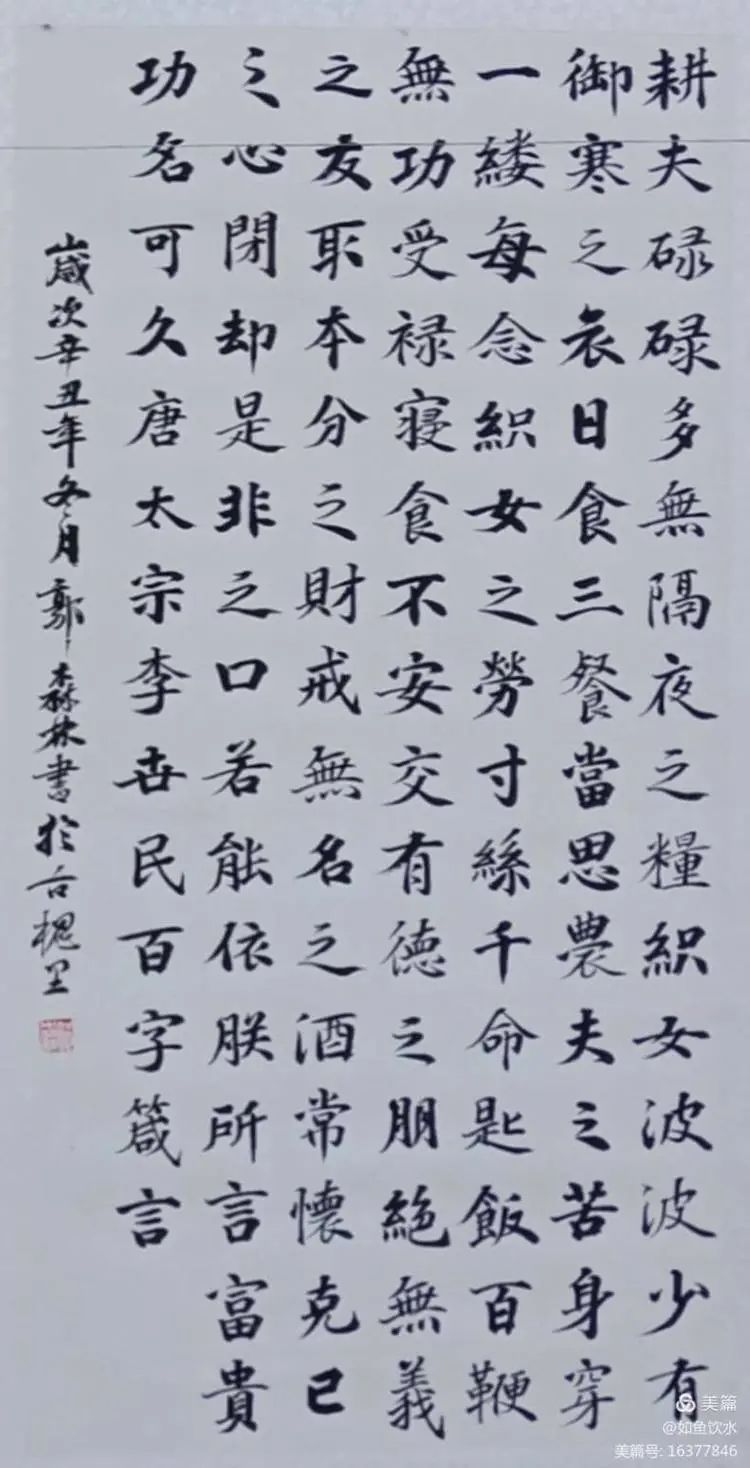 耕夫碌碌多無隔夜之糧織女波波少有
御寒之衣日食三餐當思農夫之苦身穿
一縷每念織女之勞寸絲千命匙飯百鞭
無功受禄寢食不安交有德之朋絕無義
之友取本分之財戒無名之酒常懷克己
之心閉却是非之口若能依朕所言富貴
功名可久唐太宗李世民百字箴言
歲次辛丑年冬月郭森林書於古槐里
美篇
@如鱼饮水
美篇号: 16377846